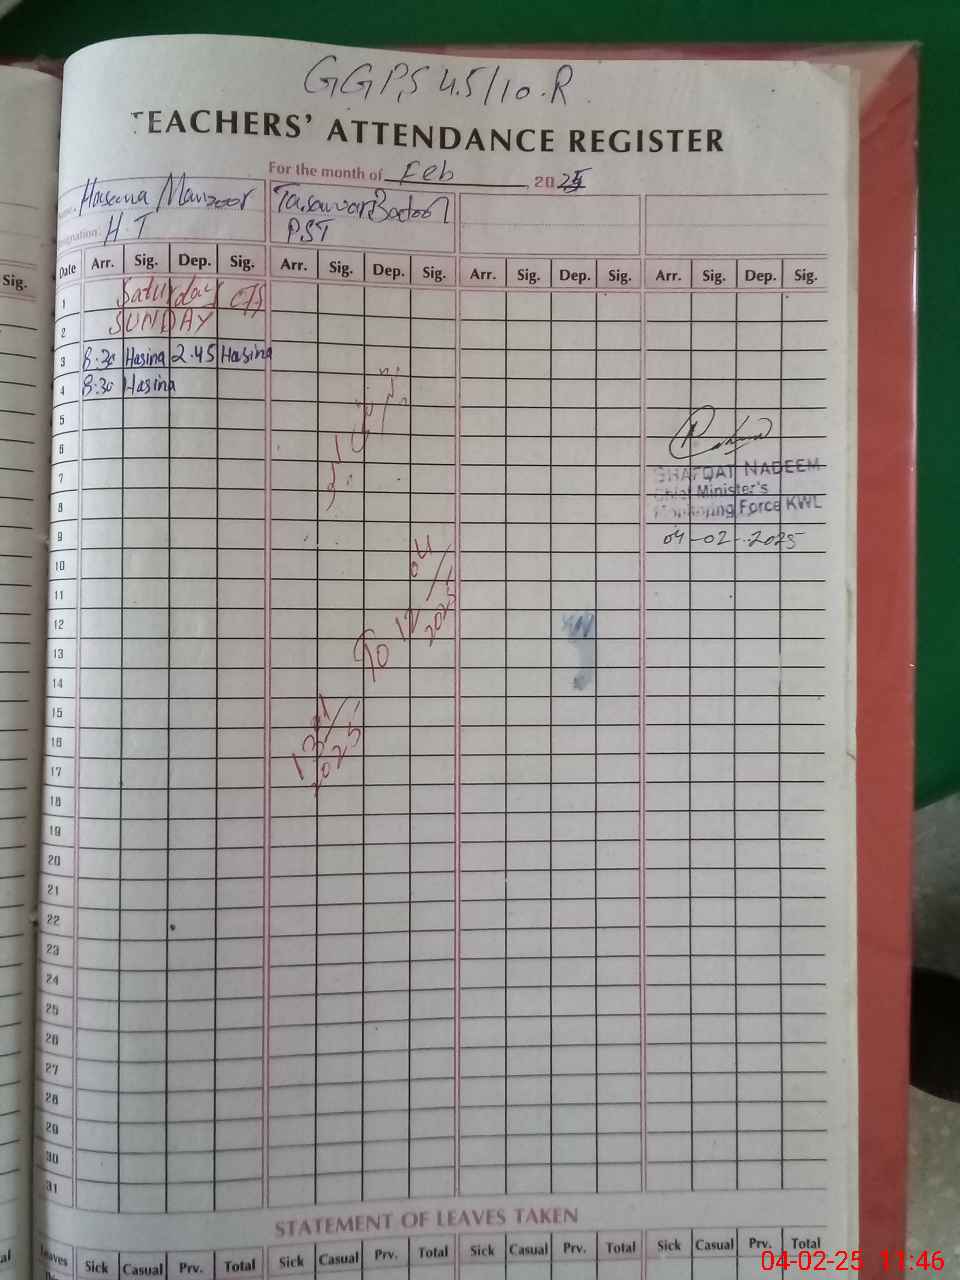 GGPS 45/10.R
TEACHERS' ATTENDANCE REGISTER
For the month of Feb, 2025
Haseena Manzoor
Designation: H.T
PST
Date Arr. Sig. Dep. Sig. Arr. Sig. Dep. Sig. Arr. Sig. Dep. Sig. Arr. Sig. Dep. Sig.
Sig.
1 Saturday
2 SUNDAY
3 8.30 Hasina 2.45 Hasina
4 8:30 Hasina
5
6
7
8
9
10
11
12
13
14
15
16
17
18
19
20
21
22
23
24
25
26
27
28
29
30
31
SHAFQAT NADEEM
Chief Minister's
Monitoring Force KWL
04-02-2025
13/01/2025 To 12/04/2025
STATEMENT OF LEAVES TAKEN
Leaves Sick Casual Prv. Total Sick Casual Prv. Total Sick Casual Prv. Total Sick Casual Prv. Total
04-02-25 11:46